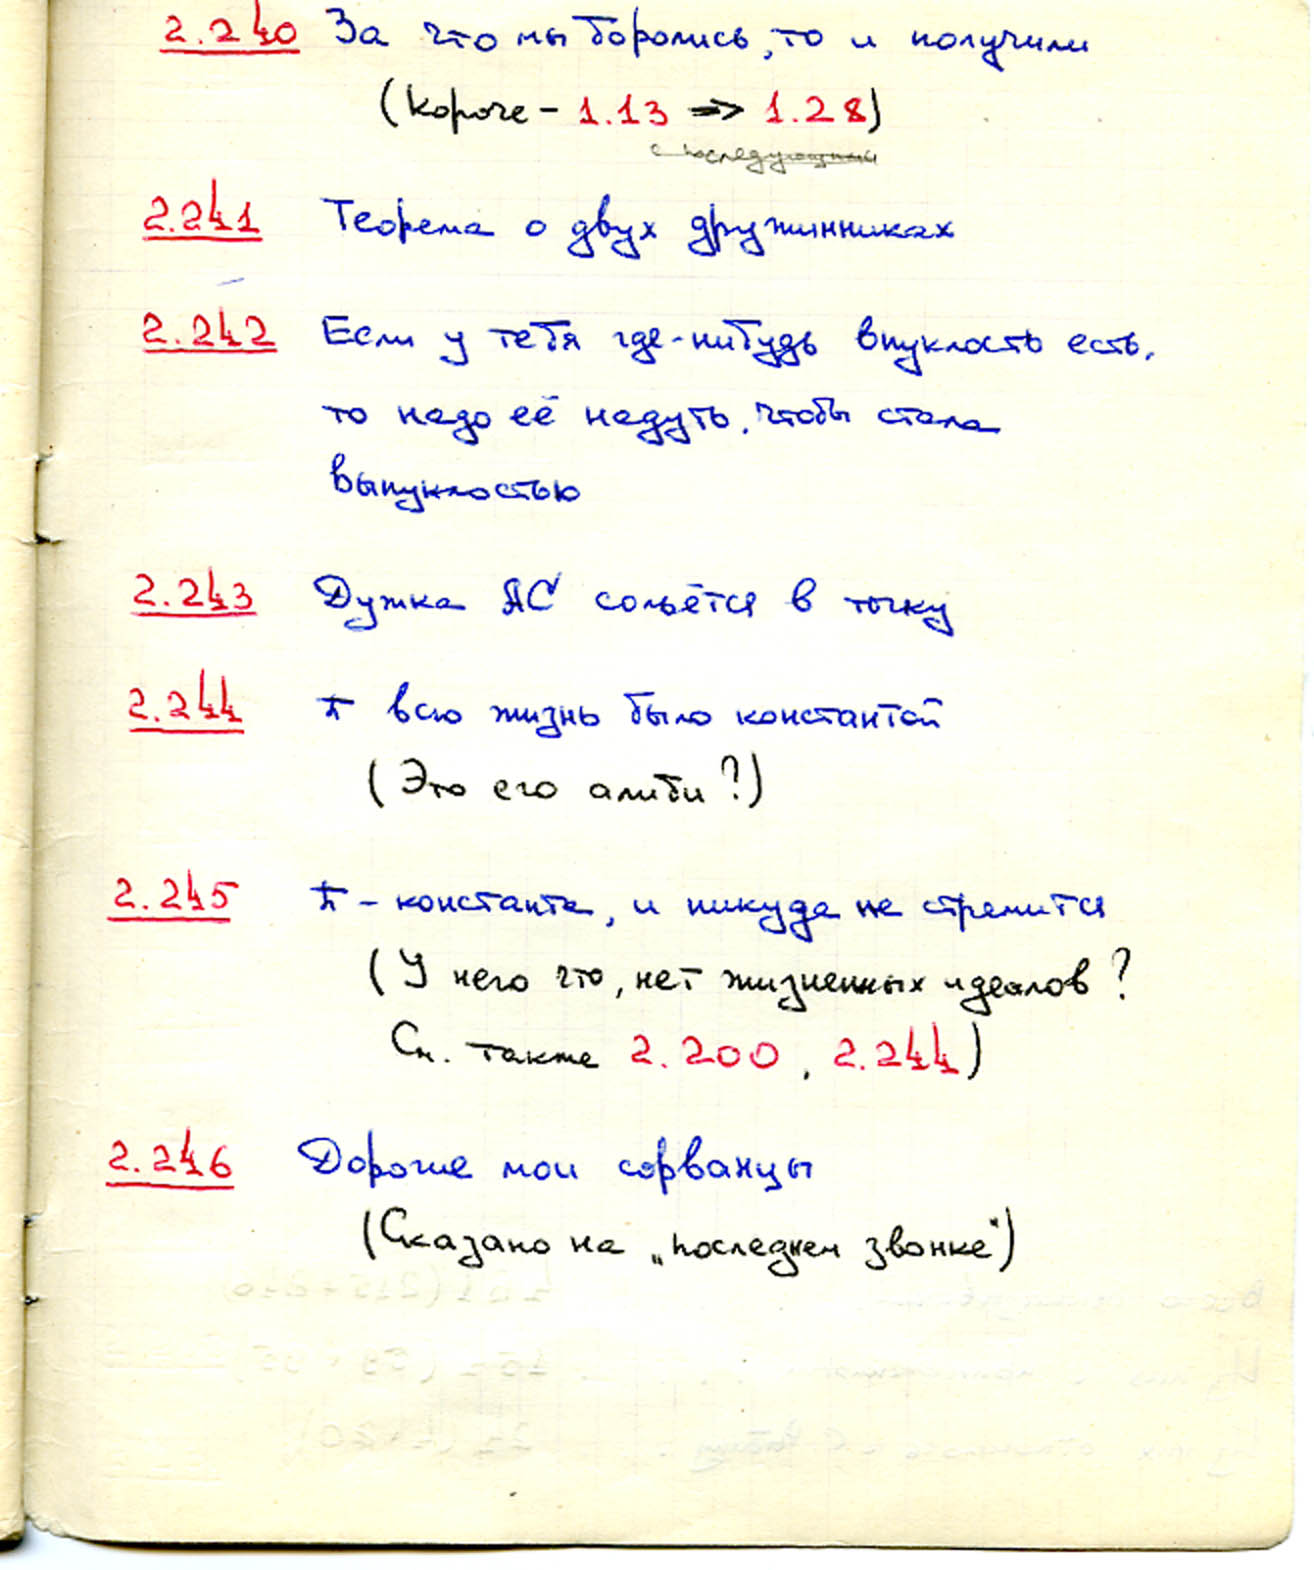 2.240 За что мы боролись, то и получили
(Короче - 1.13 => 1.28)
с последующими
2.241 Теорема о двух дружинниках
2.242 Если у тебя где-нибудь впуклость есть,
то надо её надуть, чтобы стала
выпуклостью
2.243 Дужка AC сольётся в точку
2.244 π всю жизнь было константой
(Это его алиби?)
2.245 π - константа, и никуда не стремится
(У него что, нет жизненных идеалов?
См. также 2.200, 2.244)
2.246 Дорогие мои сорванцы
(Сказано на „последнем звонке“)